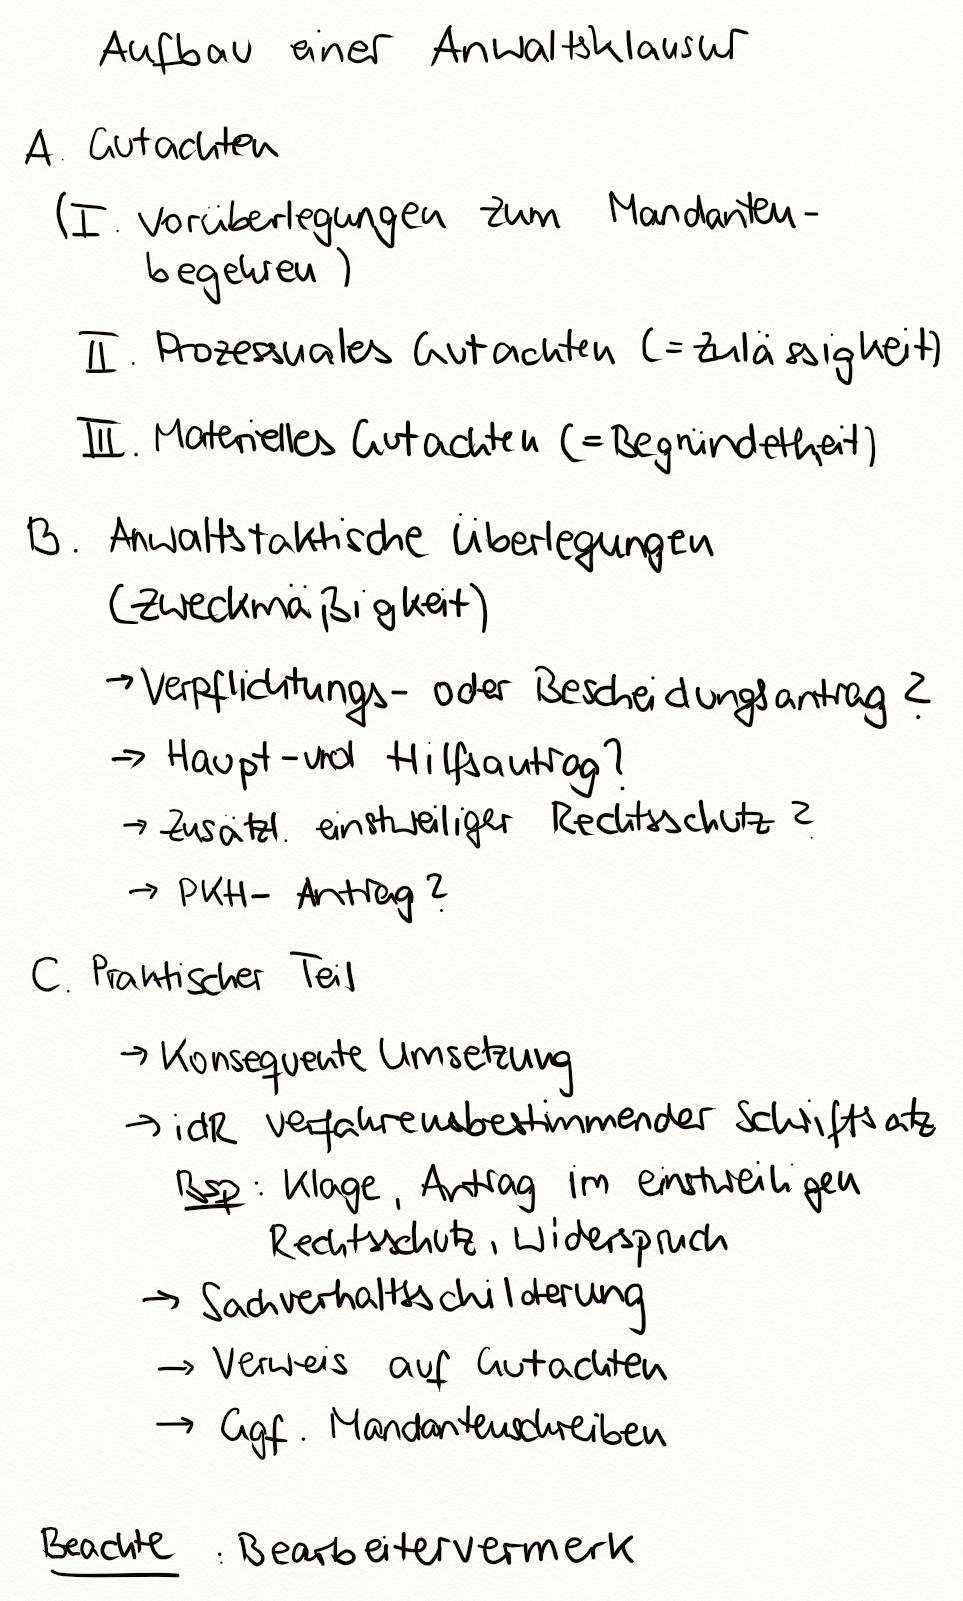 Aufbau einer Anwaltsklausur
A. Gutachten
(I. Vorüberlegungen zum Mandanten-
begehren)
II. Prozessuales Gutachten (=Zulässigkeit)
III. Materielles Gutachten (=Begründetheit)
B. Anwaltstaktische Überlegungen
(Zweckmäßigkeit)
→ Verpflichtungs- oder Bescheidungsantrag?
→ Haupt-und Hilfsantrag?
→ Zusätzl. einstweiliger Rechtsschutz?
→ PKH- Antrag?
C. Praktischer Teil
→ Konsequente Umsetzung
→ idR verfahrensbestimmender Schriftsatz
Bsp: Klage, Antrag im einstweiligen
Rechtsschutz, Widerspruch
→ Sachverhaltsschilderung
→ Verweis auf Gutachten
→ Ggf. Mandantenschreiben
Beachte : Bearbeitervermerk